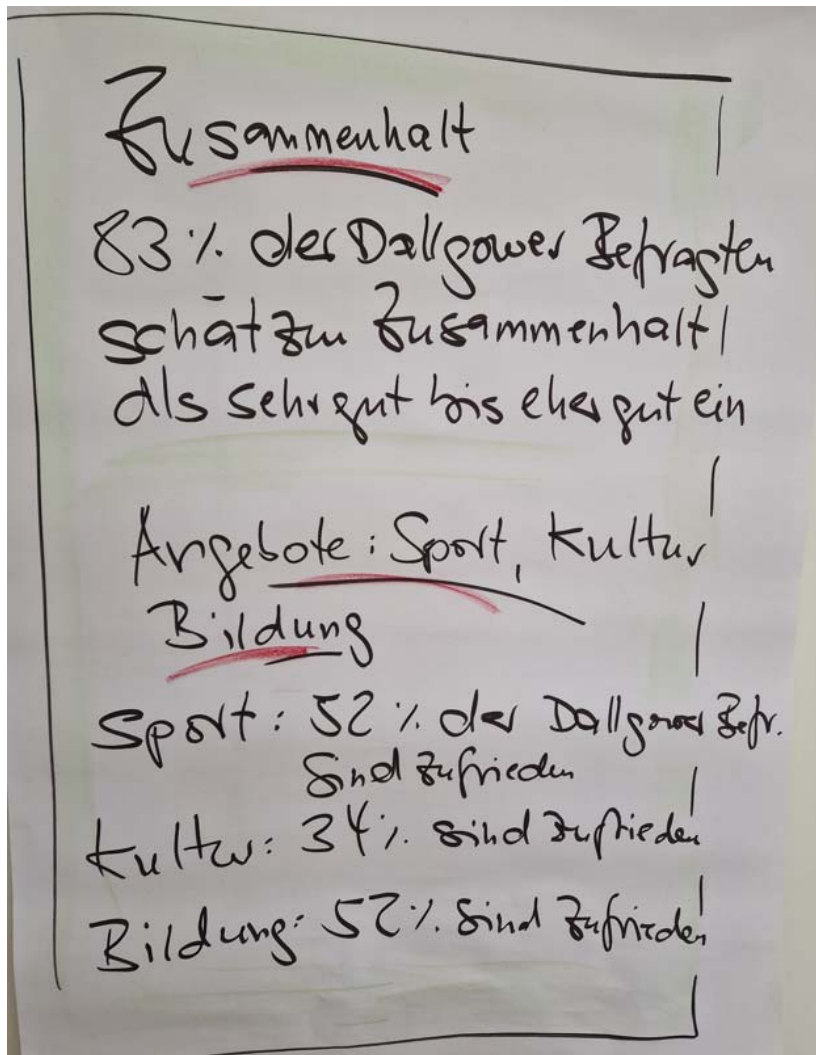 Zusammenhalt
83 % der Dallgower Befragten
schätzen Zusammenhalt
als sehr gut bis eher gut ein
Angebote: Sport, Kultur
Bildung
Sport: 52 % der Dallgower Befr.
sind zufrieden
Kultur: 34 % sind zufrieden
Bildung: 52 % sind zufrieden